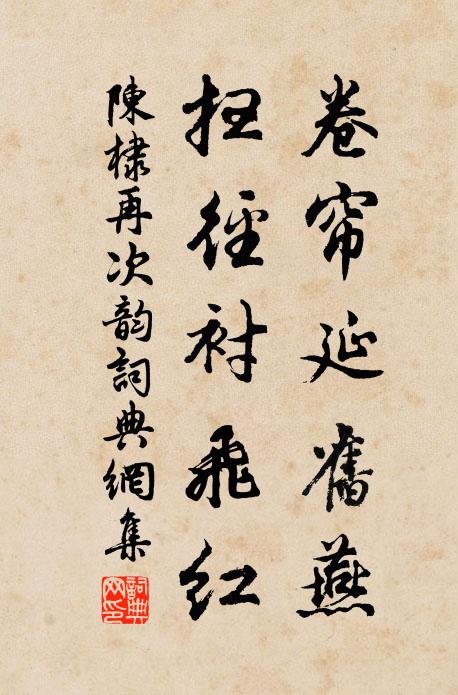 卷帘延舊燕
扫徑衬飛红
陳棣再次韵詞典網集
詞典网印